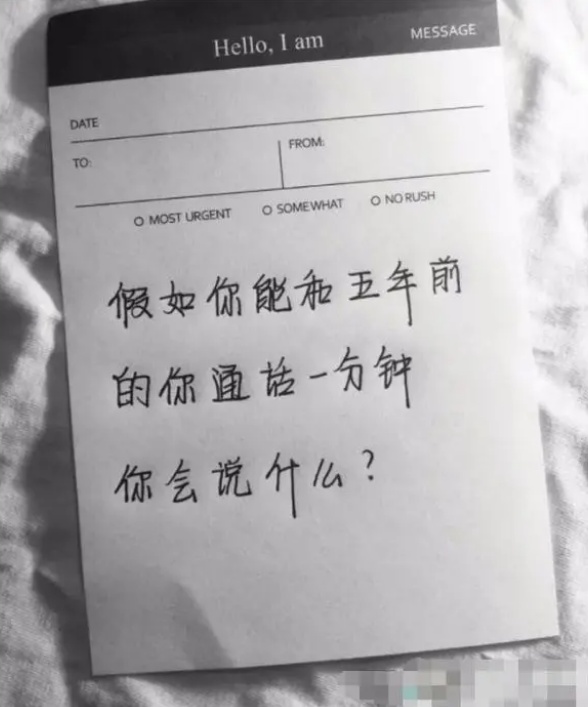 Hello, I am
MESSAGE
DATE
TO:
FROM:
O MOST URGENT O SOMEWHAT O NO RUSH
假如你能和五年前
的你通话一分钟
你会说什么?